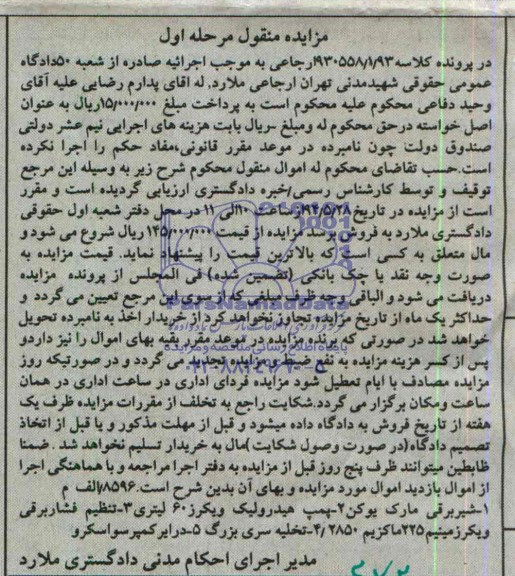 مزایده منقول مرحله اول
در پرونده کلاسه ۹۳۰۵۵۸/۱/۹۳ارجاعی به موجب اجرائیه صادره از شعبه ۵۰دادگاه
عمومی حقوقی شهیدمدنی تهران ارجاعی ملارد, له اقای پدارم رضایی علیه آقای
وحید دفاعی محکوم علیه محکوم است به پرداخت مبلغ ۱۵/۰۰۰/۰۰۰ریال به عنوان
اصل خواسته درحق محکوم له ومبلغ -ریال بابت هزینه های اجرایی نیم عشر دولتی
صندوق دولت چون نامبرده در موعد مقرر قانونی،مفاد حکم را اجرا نکرده
است.حسب تقاضای محکوم له اموال منقول محکوم شرح زیر به وسیله این مرجع
توقیف و توسط کارشناس رسمی/خبره دادگستری ارزیابی گردیده است و مقرر
است از مزایده در تاریخ ۹۴/۵/۲۸از ساعت ۱۰الی ۱۱ در محل دفتر شعبه اول حقوقی
دادگستری ملارد به فروش برسد مزایده از قیمت ۱۴۵/۰۰۰/۰۰۰ ریال شروع می شود و
مال متعلق به کسی است که بالاترین قیمت را پیشنهاد نماید. قیمت مزایده به
صورت وجه نقد یا چک بانکی (تضمین شده) فی المجلس از برونده مزایده
دریافت می شود و الباقی وجه ظرف مبلغی که از سوی این مرجع تعیین می گردد و
حداکثر یک ماه از تاریخ مزایده تجاوز نخواهد کرد از خریدار اخذ به نامبرده تحویل
خواهد شد در صورتی که برنده مزایده در موعد مقرر بقیه بهای اموال را نیز داردو
پس از کسر هزینه مزایده به نفع ضبط و مزایده تجدید می گردد و در صورتیکه روز
مزایده مصادف با ایام تعطیل شود مزایده فردای اداری در ساعت اداری در همان
ساعت ومکان برگزار می گردد.شکایت راجع به تخلف از مقررات مزایده ظرف یک
هفته از تاریخ فروش به دادگاه داده میشود و قبل از مهلت مذکور و یا قبل از اتخاذ
تصمیم دادگاه (در صورت وصول شکایت )مال به خریدار تسلیم نخواهد شد . ضمنا
ظابطین میتوانند ظرف پنج روز قبل از مزایده به دفتر اجرا مراجعه و با هماهنگی اجرا
از اموال بازدید اموال مورد مزایده و بهای آن بدین شرح است.۷۸۵۹۶الف م
۱-شیربرقی مارک یوکن۲-پمپ هیدرولیک ویکرز۶۰ لیتری۳-تنظیم فشاربرقی
ویکرزمینیم۲۲۵ماکزیم ۲۸۵۰ /۴-تخلیه سری بزرگ ۵-درایرکمپرسواسکرو
مدیر اجرای احکام مدنی دادگستری ملارد
ParsNamadData
پایگاه اطلاع رسانی مناقصه و مزایده